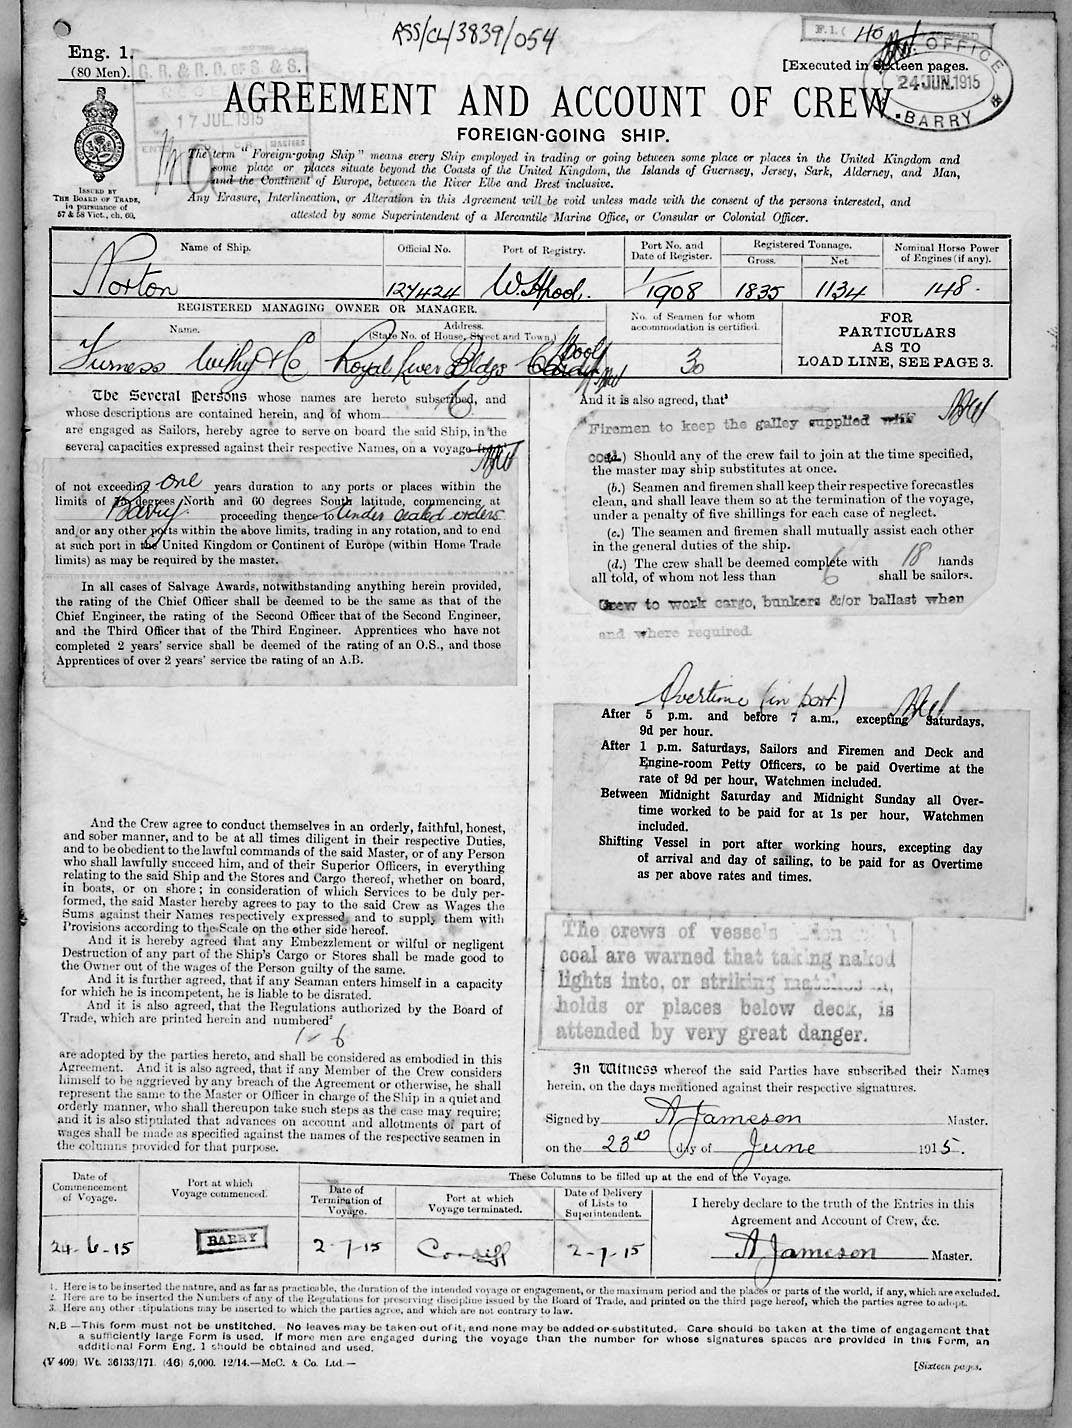 RSS/CL/3839/054
Eng. 1.
(80 Men).
G. R. & R. O. OF S. & S.
17 JUL 1915
[Executed in Sixteen pages.
OFFICE
24 JUN. 1915
BARRY
AGREEMENT AND ACCOUNT OF CREW
FOREIGN-GOING SHIP.
ISSUED BY
THE BOARD OF TRADE,
in pursuance of
57 & 58 Vict., ch. 60.
The term "Foreign-going Ship" means every Ship employed in trading or going between some place or places in the United Kingdom and
some place or places situate beyond the Coasts of the United Kingdom, the Islands of Guernsey, Jersey, Sark, Alderney, and Man,
and the Continent of Europe, between the River Elbe and Brest inclusive.
Any Erasure, Interlineation, or Alteration in this Agreement will be void unless made with the consent of the persons interested, and
attested by some Superintendent of a Mercantile Marine Office, or Consular or Colonial Officer.
Name of Ship. Official No. Port of Registry. Port No. and Date of Register. Registered Tonnage. Gross. Net Nominal Horse Power of Engines (if any).
Norton 127424 W. Hpool. 1/1908 1835 1134 148.
REGISTERED MANAGING OWNER OR MANAGER.
Name. Address. (State No. of House, Street and Town.)
Furness Withy & Co Royal Liver Bldgs Lpool
No. of Seamen for whom accommodation is certified.
30
FOR
PARTICULARS
AS TO
LOAD LINE, SEE PAGE 3.
The Several Persons whose names are hereto subscribed, and
whose descriptions are contained herein, and of whom 6
are engaged as Sailors, hereby agree to serve on board the said Ship, in the
several capacities expressed against their respective Names, on a voyage from
of not exceeding one years duration to any ports or places within the
limits of 75 degrees North and 60 degrees South latitude, commencing at
Barry proceeding thence to Under sealed orders
and/or any other ports within the above limits, trading in any rotation, and to end
at such port in the United Kingdom or Continent of Europe (within Home Trade
limits) as may be required by the master.
In all cases of Salvage Awards, notwithstanding anything herein provided,
the rating of the Chief Officer shall be deemed to be the same as that of the
Chief Engineer, the rating of the Second Officer that of the Second Engineer,
and the Third Officer that of the Third Engineer. Apprentices who have not
completed 2 years' service shall be deemed of the rating of an O.S., and those
Apprentices of over 2 years' service the rating of an A.B.
And the Crew agree to conduct themselves in an orderly, faithful, honest,
and sober manner, and to be at all times diligent in their respective Duties,
and to be obedient to the lawful commands of the said Master, or of any Person
who shall lawfully succeed him, and of their Superior Officers, in everything
relating to the said Ship and the Stores and Cargo thereof, whether on board,
in boats, or on shore; in consideration of which Services to be duly per-
formed, the said Master hereby agrees to pay to the said Crew as Wages the
Sums against their Names respectively expressed, and to supply them with
Provisions according to the Scale on the other side hereof.
And it is hereby agreed that any Embezzlement or wilful or negligent
Destruction of any part of the Ship's Cargo or Stores shall be made good to
the Owner out of the wages of the Person guilty of the same.
And it is further agreed, that if any Seaman enters himself in a capacity
for which he is incompetent, he is liable to be disrated.
And it is also agreed, that the Regulations authorized by the Board of
Trade, which are printed herein and numbered²
1-6
are adopted by the parties hereto, and shall be considered as embodied in this
Agreement. And it is also agreed, that if any Member of the Crew considers
himself to be aggrieved by any breach of the Agreement or otherwise, he shall
represent the same to the Master or Officer in charge of the Ship in a quiet and
orderly manner, who shall thereupon take such steps as the case may require;
and it is also stipulated that advances on account and allotments of part of
wages shall be made as specified against the names of the respective seamen in
the columns provided for that purpose.
And it is also agreed, that³
Firemen to keep the galley supplied with
coal.) Should any of the crew fail to join at the time specified,
the master may ship substitutes at once.
(b.) Seamen and firemen shall keep their respective forecastles
clean, and shall leave them so at the termination of the voyage,
under a penalty of five shillings for each case of neglect.
(c.) The seamen and firemen shall mutually assist each other
in the general duties of the ship.
(d.) The crew shall be deemed complete with 18 hands
all told, of whom not less than 6 shall be sailors.
Crew to work cargo, bunkers &/or ballast when
and where required.
Overtime (in port)
After 5 p.m. and before 7 a.m., excepting Saturdays,
9d per hour.
After 1 p.m. Saturdays, Sailors and Firemen and Deck and
Engine-room Petty Officers, to be paid Overtime at the
rate of 9d per hour, Watchmen included.
Between Midnight Saturday and Midnight Sunday all Over-
time worked to be paid for at 1s per hour, Watchmen
included.
Shifting Vessel in port after working hours, excepting day
of arrival and day of sailing, to be paid for as Overtime
as per above rates and times.
The crews of vessels
coal are warned that taking naked
lights into, or striking matches in,
holds or places below deck, is
attended by very great danger.
In Witness whereof the said Parties have subscribed their Names
herein, on the days mentioned against their respective signatures.
Signed by A Jameson Master.
on the 23rd day of June 1915.
Date of Commencement of Voyage. Port at which Voyage commenced. These Columns to be filled up at the end of the Voyage.
Date of Termination of Voyage. Port at which Voyage terminated. Date of Delivery of Lists to Superintendent.
I hereby declare to the truth of the Entries in this
Agreement and Account of Crew, &c.
24-6-15 BARRY 2-7-15 Cardiff 2-7-15 A Jameson Master.
1. Here is to be inserted the nature, and as far as practicable, the duration of the intended voyage or engagement, or the maximum period and the places or parts of the world, if any, which are excluded.
2. Here are to be inserted the Numbers of any of the Regulations for preserving discipline issued by the Board of Trade, and printed on the third page hereof, which the parties agree to adopt.
3. Here any other stipulations may be inserted to which the parties agree, and which are not contrary to law.
N.B —This form must not be unstitched. No leaves may be taken out of it, and none may be added or substituted. Care should be taken at the time of engagement that
a sufficiently large Form is used. If more men are engaged during the voyage than the number for whose signatures spaces are provided in this Form, an
additional Form Eng. 1 should be obtained and used.
(V 409) Wt. 36133/171. (46) 5,000. 12/14.—McC. & Co. Ltd.—
[Sixteen pages.